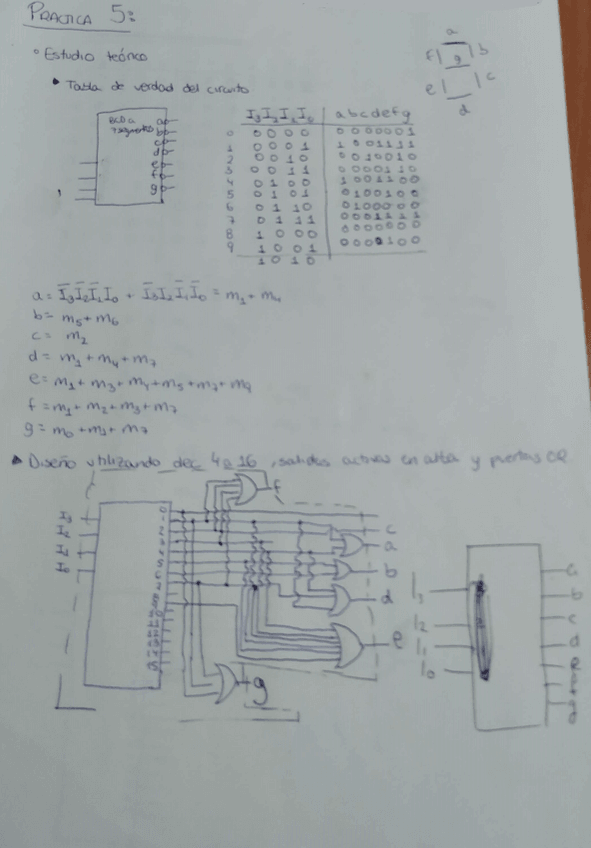 PRACTICA 5:
a
f b
g
e c
d
° Estudio teórico
Tabla de verdad del circuito
BCD a
7segmentos
a
b
c
d
e
f
g
I3 I2 I1 I0 a b c d e f g
0 0 0 0 0 0 0 0 0 0 0 1
1 0 0 0 1 1 0 0 1 1 1 1
2 0 0 1 0 0 0 1 0 0 1 0
3 0 0 1 1 0 0 0 0 1 1 0
4 0 1 0 0 1 0 0 1 1 0 0
5 0 1 0 1 0 1 0 0 1 0 0
6 0 1 1 0 0 1 0 0 0 0 0
7 0 1 1 1 0 0 0 1 1 1 1
8 1 0 0 0 0 0 0 0 0 0 0
9 1 0 0 1 0 0 0 0 1 0 0
1 0 1 0
a = I̅3I̅2I̅1I0 + I̅3I2I̅1I̅0 = m1 + m4
b = m5 + m6
c = m2
d = m1 + m4 + m7
e = m1 + m3 + m4 + m5 + m7 + m9
f = m1 + m2 + m3 + m7
g = m0 + m1 + m7
Diseño utilizando dec 4 a 16, salidas activas en alta y puertas OR
f
I3
I2
I1
I0
c
a
b
d
e
g
I3
I2
I1
I0
a
b
c
d
e
f
g